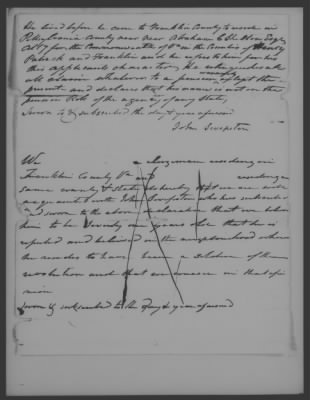 He lived before he came to Franklin County to reside in
Pittsylvania County near near Abraham C. Shelton Esqr
for the Commonwealth of Va in the Counties of Henry
Patrick and Franklin and he refers to him for
this applicants character, He relinquishes all
claim whatever to a pension except the
present and declares that his name is not on the
pension Roll of the agency of any State,
Sworn to & subscribed the day & year aforesaid
John Swepston
We a clergyman residing in
Franklin County Va and residing in
same county & State do hereby that we are well
acquainted with John Swepston who has subscribed
and sworn to the above declaration that we believe
him to be Seventy one years old that he is
reputed and believed in the neighborhood where
he resides to have been a soldier of the
revolution and that we concur in that opi
nion
Sworn & subscribed to the day & year aforesaid